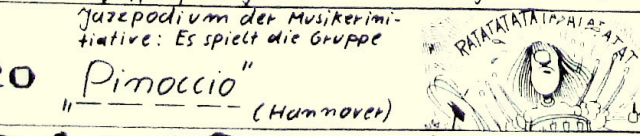 Jazzpodium der Musikerini-
tiative: Es spielt die Gruppe
20
„Pinoccio"
(Hannover)
RATATATATA